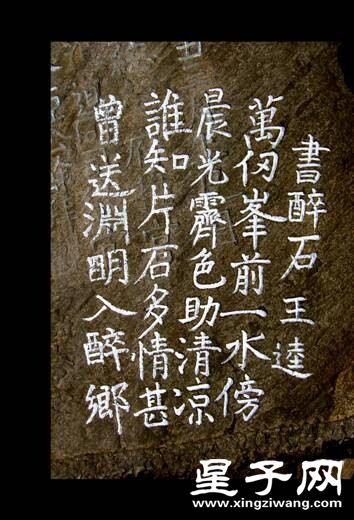 書醉石王逵
萬仞峯前一水傍
晨光霽色助清凉
誰知片石多情甚
曾送淵明入醉鄉
星子网
www.xingziwang.com